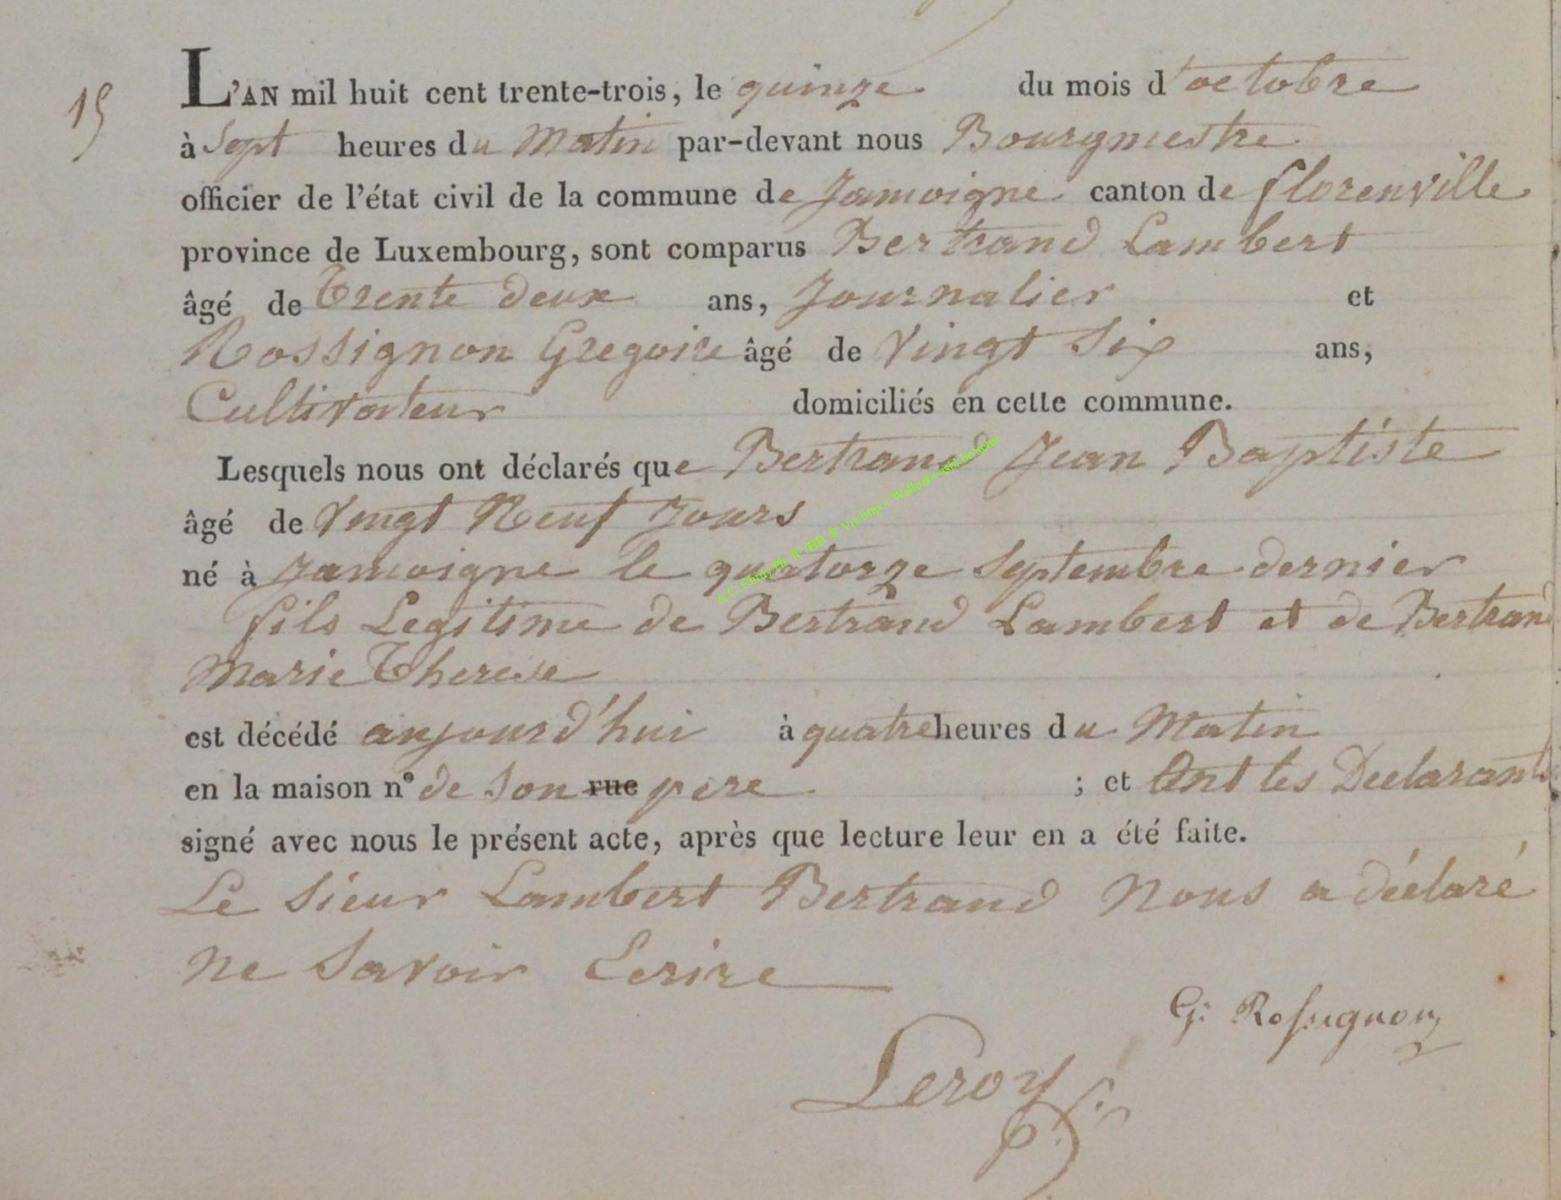 15
L'AN mil huit cent trente-trois, le quinze du mois d'octobre
à Sept heures du Matin par-devant nous Bourgmestre
officier de l'état civil de la commune de Jamoigne canton de florenville
province de Luxembourg, sont comparus Bertrand Lambert
âgé de Trente deux ans, Journalier et
Rossignon Gregoire âgé de Vingt Six ans,
Cultivateur domiciliés en cette commune.
Lesquels nous ont déclarés que Bertrand Jean Baptiste
âgé de Vingt Neuf Jours
né à Jamoigne le quatorze Septembre dernier
fils Legitime de Bertrand Lambert et de Bertrand
Marie Therese
est décédé aujourd'hui à quatre heures du Matin
en la maison n° de Son rue pere ; et Ont les Declarants
signé avec nous le présent acte, après que lecture leur en a été faite.
Le Sieur Lambert Bertrand Nous a déclaré
Ne Savoir Ecrire
G: Rossignon
Leroy